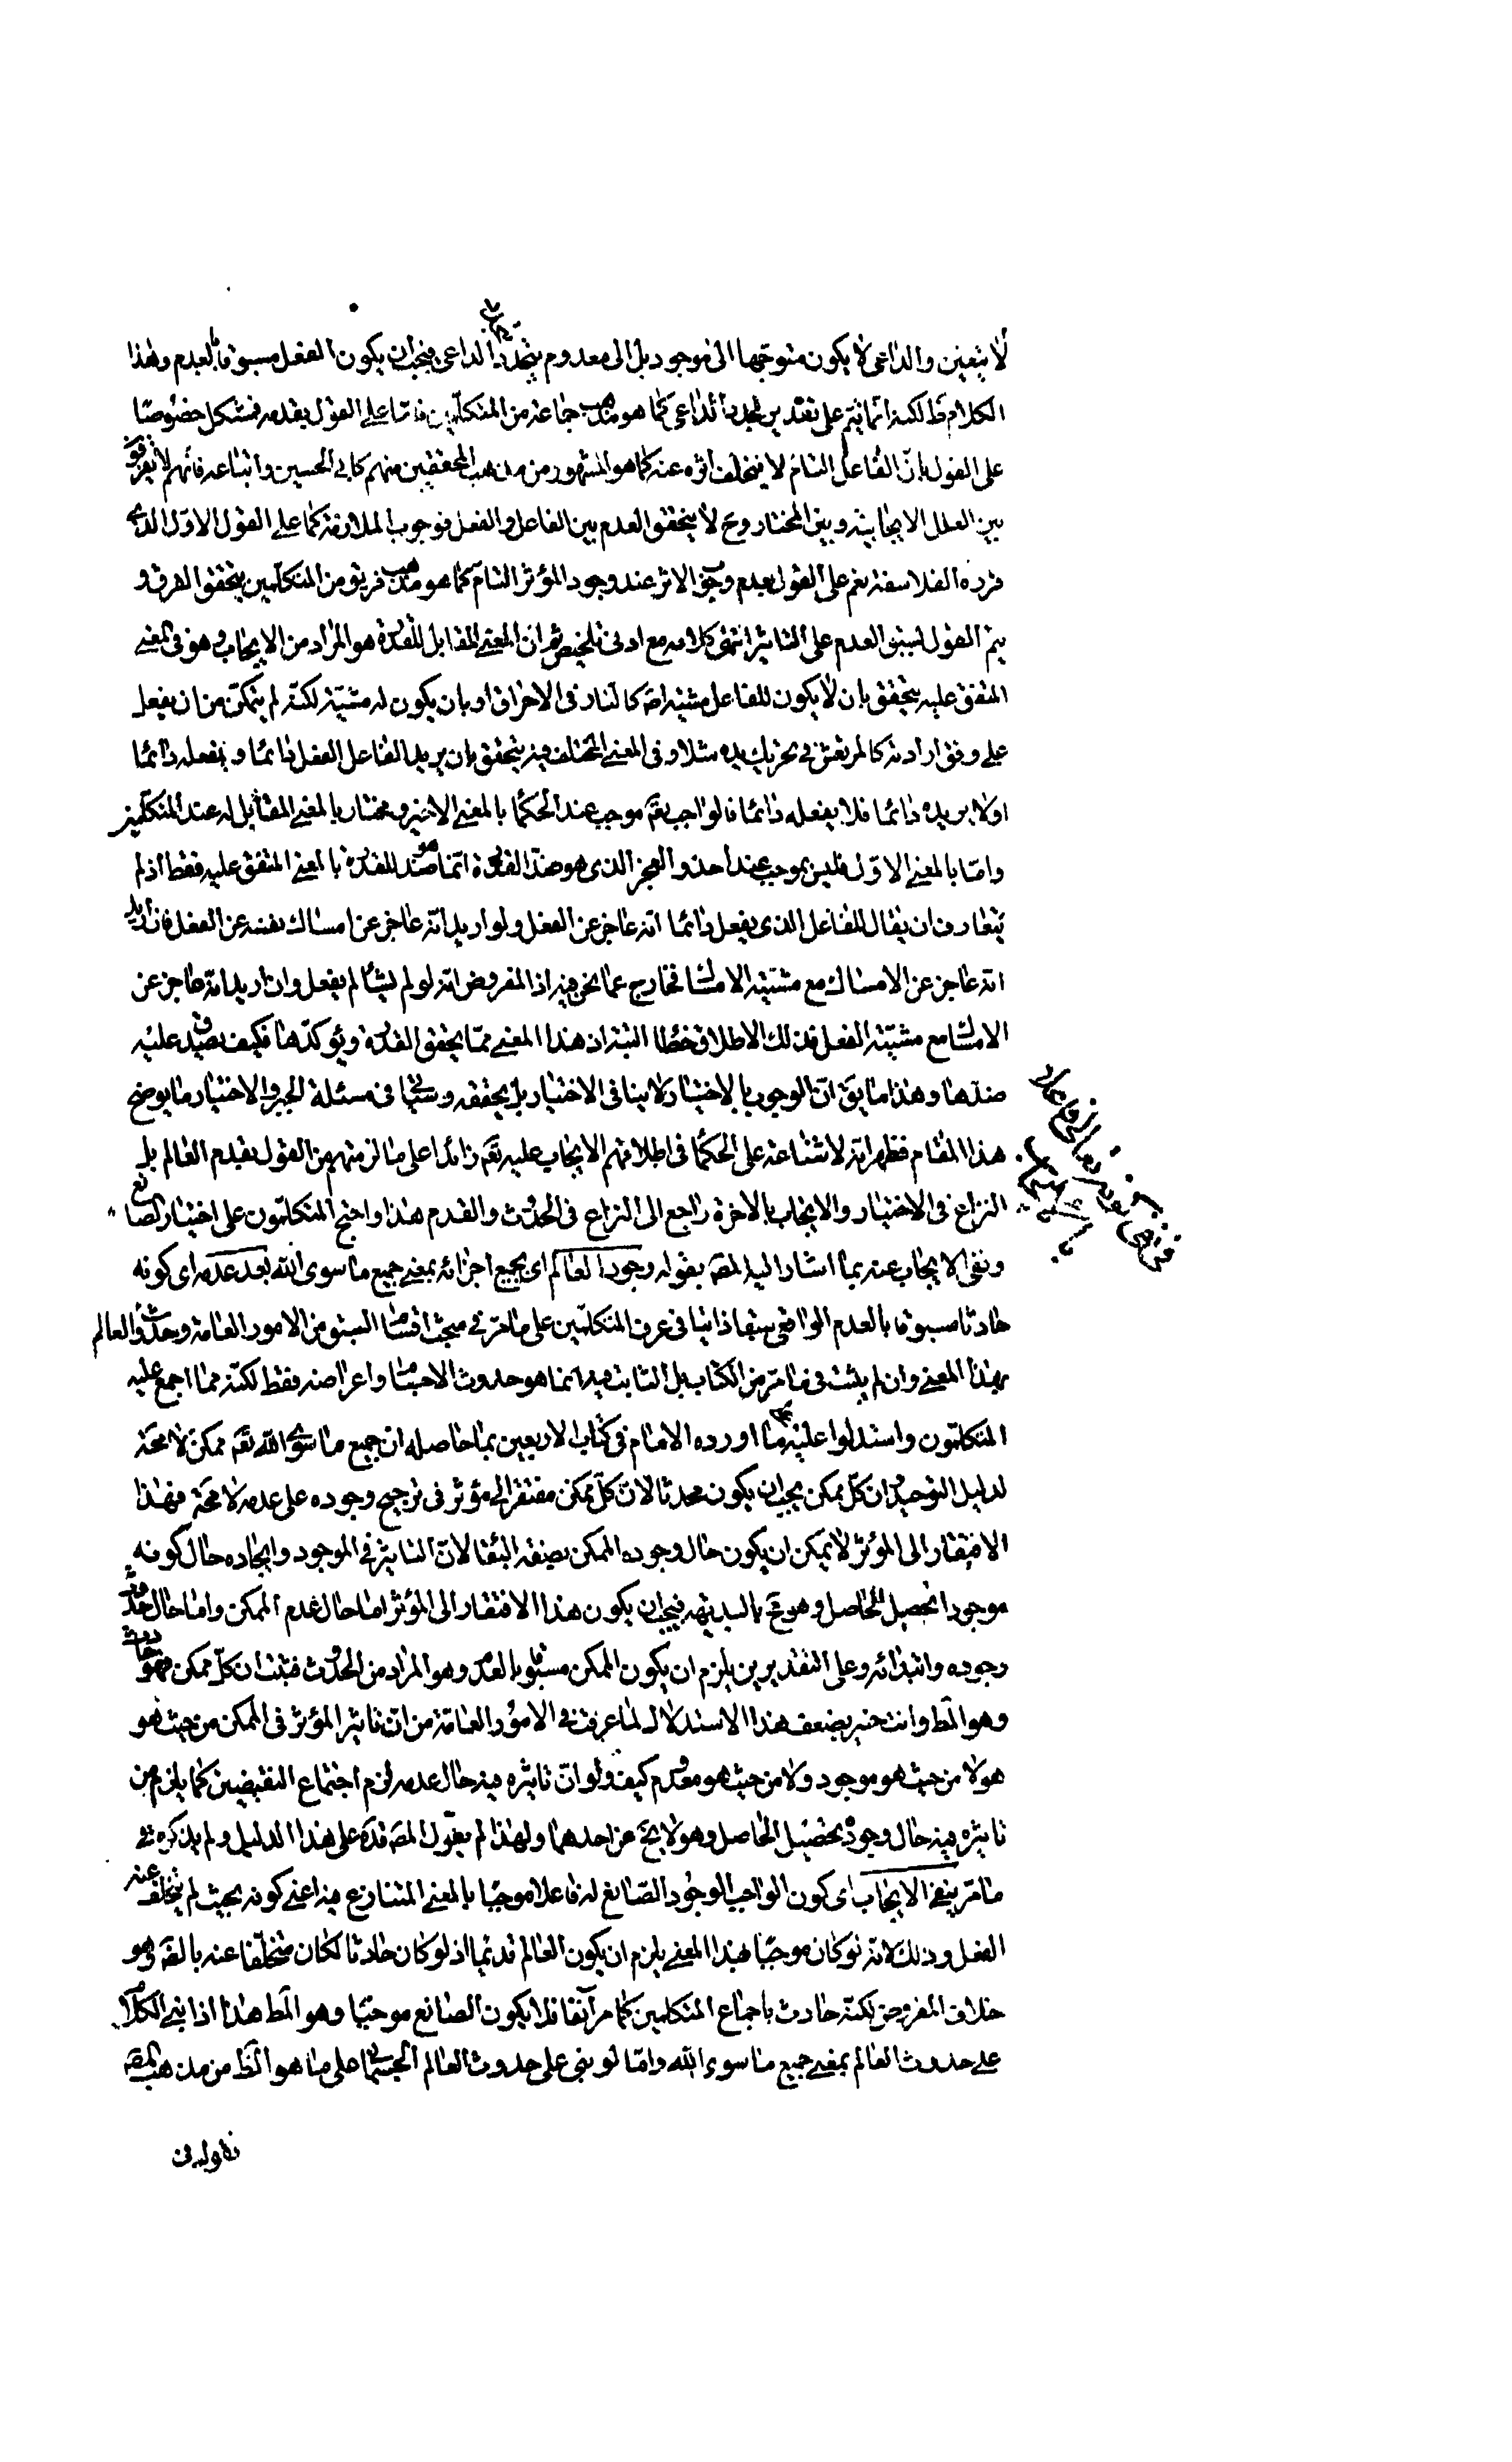 لا يتعين والداعى لا يكون متوجها الى موجود بل الى معدوم يتجدد الداعى فيجب ان يكون الفعل مسبوقا بالعدم وهذا
الكلام ظ لكنه انما يتم على تقدير تجدد الداعى كما هو مذهب جماعة من المتكلمين فاما على القول بقدمه فمشكل خصوصا
على القول بان الفاعل التام لا يتخلف اثره عنه كما هو المشهور من مذهب المحققين منهم كابى الحسين واتباعه فانهم لا يفرقون
بين العلل الايجابية وبين المختار وح لا يتحقق العدم بين الفاعل والفعل فوجوب الملازمة كما على القول الاول الذى
فرده الفلاسفة نعم على القول بعدم وجوب الاثر عند وجود المؤثر التام كما هو مذهب فريق من المتكلمين يتحقق الفرق و
يتم القول بسبق العدم على التاثير انتهى كلامه مع ادنى تلخيص ثم ان المعنى المقابل للقدرة هو المراد من الايجاب وهو فى المعنى
المتفق عليه يتحقق بان لا يكون للفاعل مشية اصّ كالنار فى الاحراق او بان يكون له مشية لكنه لم يتمكن من ان يفعل
على وفق ارادته كالمرتعش فى تحريك يده مثلا وفى المعنى المختلف فيه يتحقق بان يريد الفاعل الفعل دائما ويفعله دائما
اولا يريده دائما فلا يفعله دائما فالواجب تعم موجب عند الحكما بالمعنى الاخير ومختار بالمعنى المقابل له عند المتكلمين
واما بالمعنى الاول فليس بموجب عند احد والعجز الذى هو ضد القدرة انما هو ضد للقدرة بالمعنى المتفق عليه فقط اذ لم
يتعارف ان يقال للفاعل الذى يفعل دائما انه عاجز عن الفعل ولو اريد انه عاجز عن امساك نفسه عن الفعل فان اريد
انه عاجز عن الامساك مع مشية الامساك فخارج عما نحن فيه اذ المفروض انه لو لم يشا لم يفعل وان اريد انه عاجز عن
الامساك مع مشية الفعل فذلك الاطلاق خطا البتة ان هذا المعنى مما يحقق القدرة ويؤكدها فكيف يصدق عليه
ضدها وهذا ما يق ان الوجوب بالاختيار لا ينافى الاختيار بل يحققه وسياتى فى مسئلة الجبر والاختيار ما يوضح
هذا المقام فظهر انه لا شناعة على الحكما فى اطلاقهم الايجاب عليه تعم زائدا على ما لزمهم من القول بقدم العالم بل
النزاع فى الاختيار والايجاب بالاخرة راجع الى النزاع فى الحدوث والقدم هذا واحتج المتكلمون على اختيار الصانع
ونفى الايجاب عنه بما اشار اليه المصّ بقوله وجود العالم اى بجميع اجزائه بمعنى جميع ما سوى الله بعد عدمه اى كونه
حادثا مسبوقا بالعدم الواقعى سبقا ذاتيا فى عرف المتكلمين على ما مر فى مبحث اقسام السبق من الامور العامة وحدوث العالم
بهذا المعنى وان لم يثبت فى ما مر من الكتاب بل الثابت فيه انما هو حدوث الاجسام واعراضه فقط لكنه مما اجمع عليه
المتكلمون واستدلوا عليه بما اورده الامام فى كتاب الاربعين بما حاصله ان جميع ما سوى الله تعم ممكن لا محة
لدليل التوحيد وان كل ممكن يجب ان يكون محدثا لان كل ممكن مفتقر الى مؤثر فى ترجيح وجوده على عدمه لا محة فهذا
الافتقار الى المؤثر لا يمكن ان يكون حال وجود الممكن بصفة البقا لان التاثير فى الموجود وايجاده حال كونه
موجودا تحصيل للحاصل وهو مح بالبديهة فيجب ان يكون هذا الافتقار الى المؤثر اما حال عدم الممكن واما حال حدوث
وجوده وابتدائه وعلى التقديرين يلزم ان يكون الممكن مسبوقا بالعدم وهو المراد من الحدوث فثبت ان كل ممكن فهو حادث
وهو المط وانت خبير بضعف هذا الاستدلال لما عرفت فى الامور العامة من ان تاثير المؤثر فى الممكن من حيث هو
هو لا من حيث هو موجود ولا من حيث هو معدوم كيف ولو ان تاثيره فيه حال عدمه لزم اجتماع النقيضين كما يلزم من
تاثيره فيه حال وجوده تحصيل الحاصل وهو لا يخ عن احدهما ولهذا لم يعول المصّ قده على هذا الدليل ولم يذكره فى
ما مر ينفى الايجاب اى كون الواجب الوجود الصانع له فاعلا موجبا بالمعنى المتنازع فيه اعنى كونه بحيث لم يتخلف عنه
الفعل وذلك لانه لو كان موجبا بهذا المعنى يلزم ان يكون العالم قديما اذ لو كان حادثا لكان متخلفا عنه بالضّ وهو
خلاف المفروض لكنه حادث باجماع المتكلمين كما مر آنفا فلا يكون الصانع موجبا وهو المط هذا اذا بنى الكلام
على حدوث العالم بمعنى جميع ما سوى الله واما لو بنى على حدوث العالم الجسمانى على ما هو الظ من مذهب المصّ